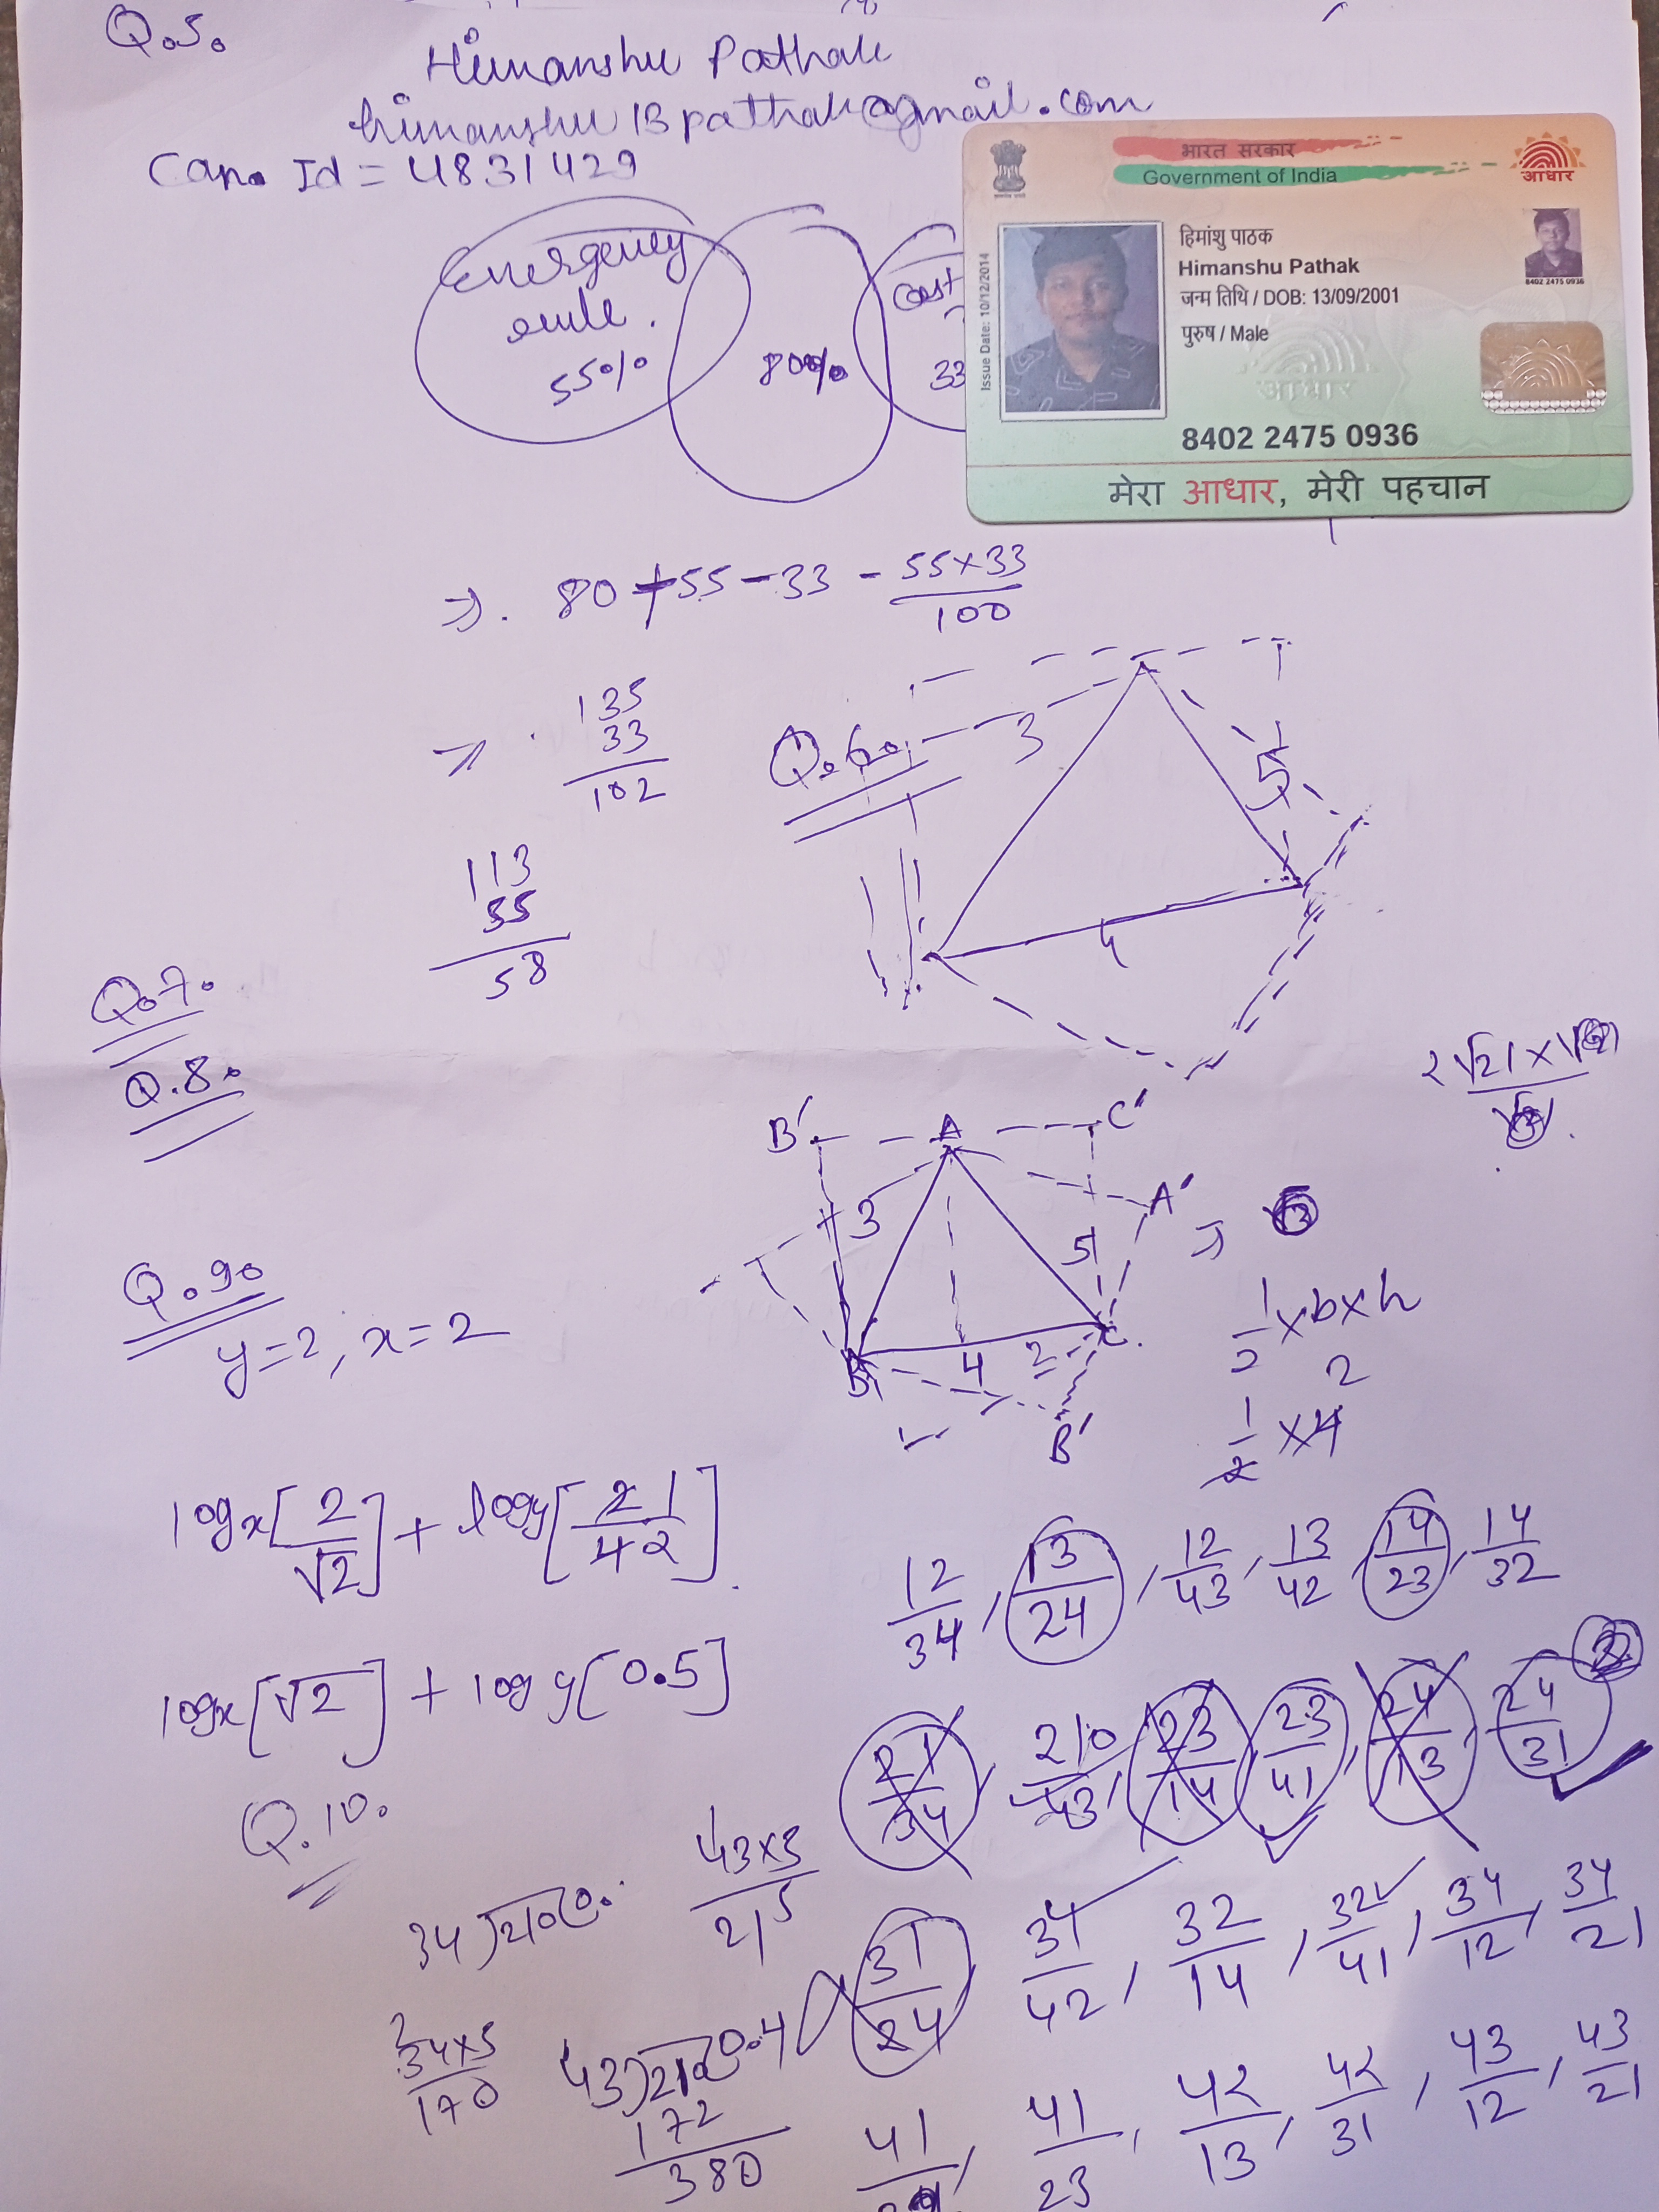 Q.5.
Himanshu Pathak
himanshu13pathak@gmail.com
Can. Id = 4831429
Emergency
55%
80%
Cost
33
भारत सरकार
Government of India
आधार
Issue Date: 10/12/2014
हिमांशु पाठक
Himanshu Pathak
जन्म तिथि / DOB: 13/09/2001
पुरुष / Male
8402 2475 0936
आधार
8402 2475 0936
मेरा आधार, मेरी पहचान
⇒. 80 + 55 - 33 - 55×33/100
⇒ 135
33
102
113
55
58
Q.6.
3
5
4
Q.7.
Q.8.
B' A C'
A'
3
5
B 4 2 C.
B'
⇒
1/2 × b × h
2
1/2 × 4
Q.9.
y=2, x=2
logx[2/√2] + logy[2 1/4 2]
logx[√2] + logy[0.5]
12/34, 13/24, 12/43, 13/42, 14/23, 14/32
21/34, 210/43, 23/14, 23/41, 24/13, 24/31
Q.10.
34)210(0.
43×5
215
31/24, 34/42, 32/14, 32/41, 34/12, 34/21
34×5
170
43)210(0.4
172
380
41, 41/23, 42/13, 42/31, 43/12, 43/21